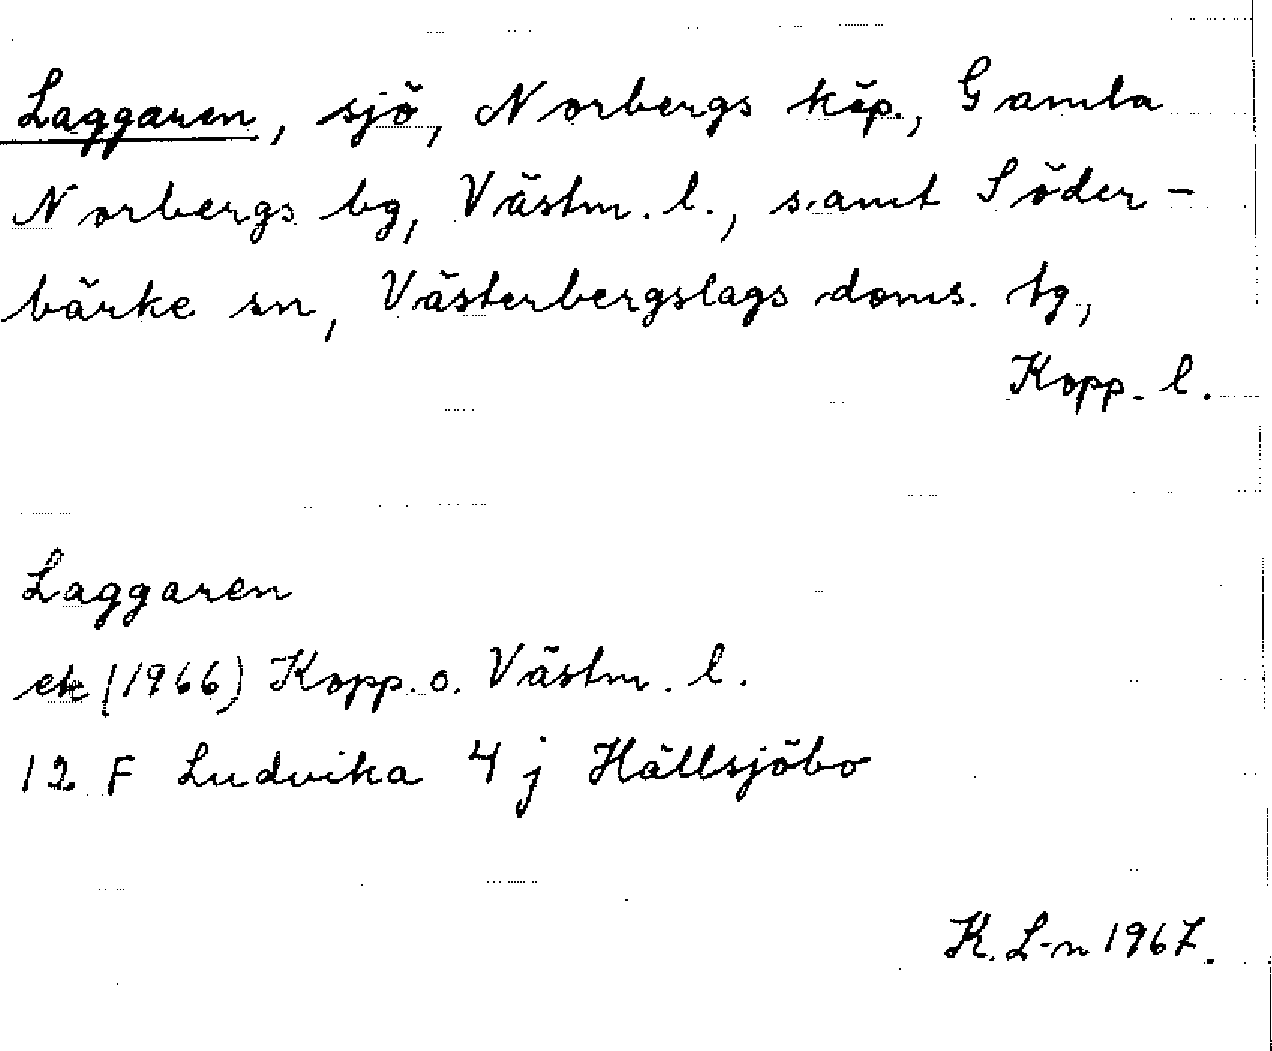 Laggaren, sjö, Norbergs köp., Gamla
Norbergs bg, Västm. l., samt Söder-
bärke sn, Västerbergslags doms. tg,
Kopp. l.
Laggaren
ek (1966) Kopp. o. Västm. l.
12 F Ludvika 4 j Hällsjöbo
K. L-n 1967.